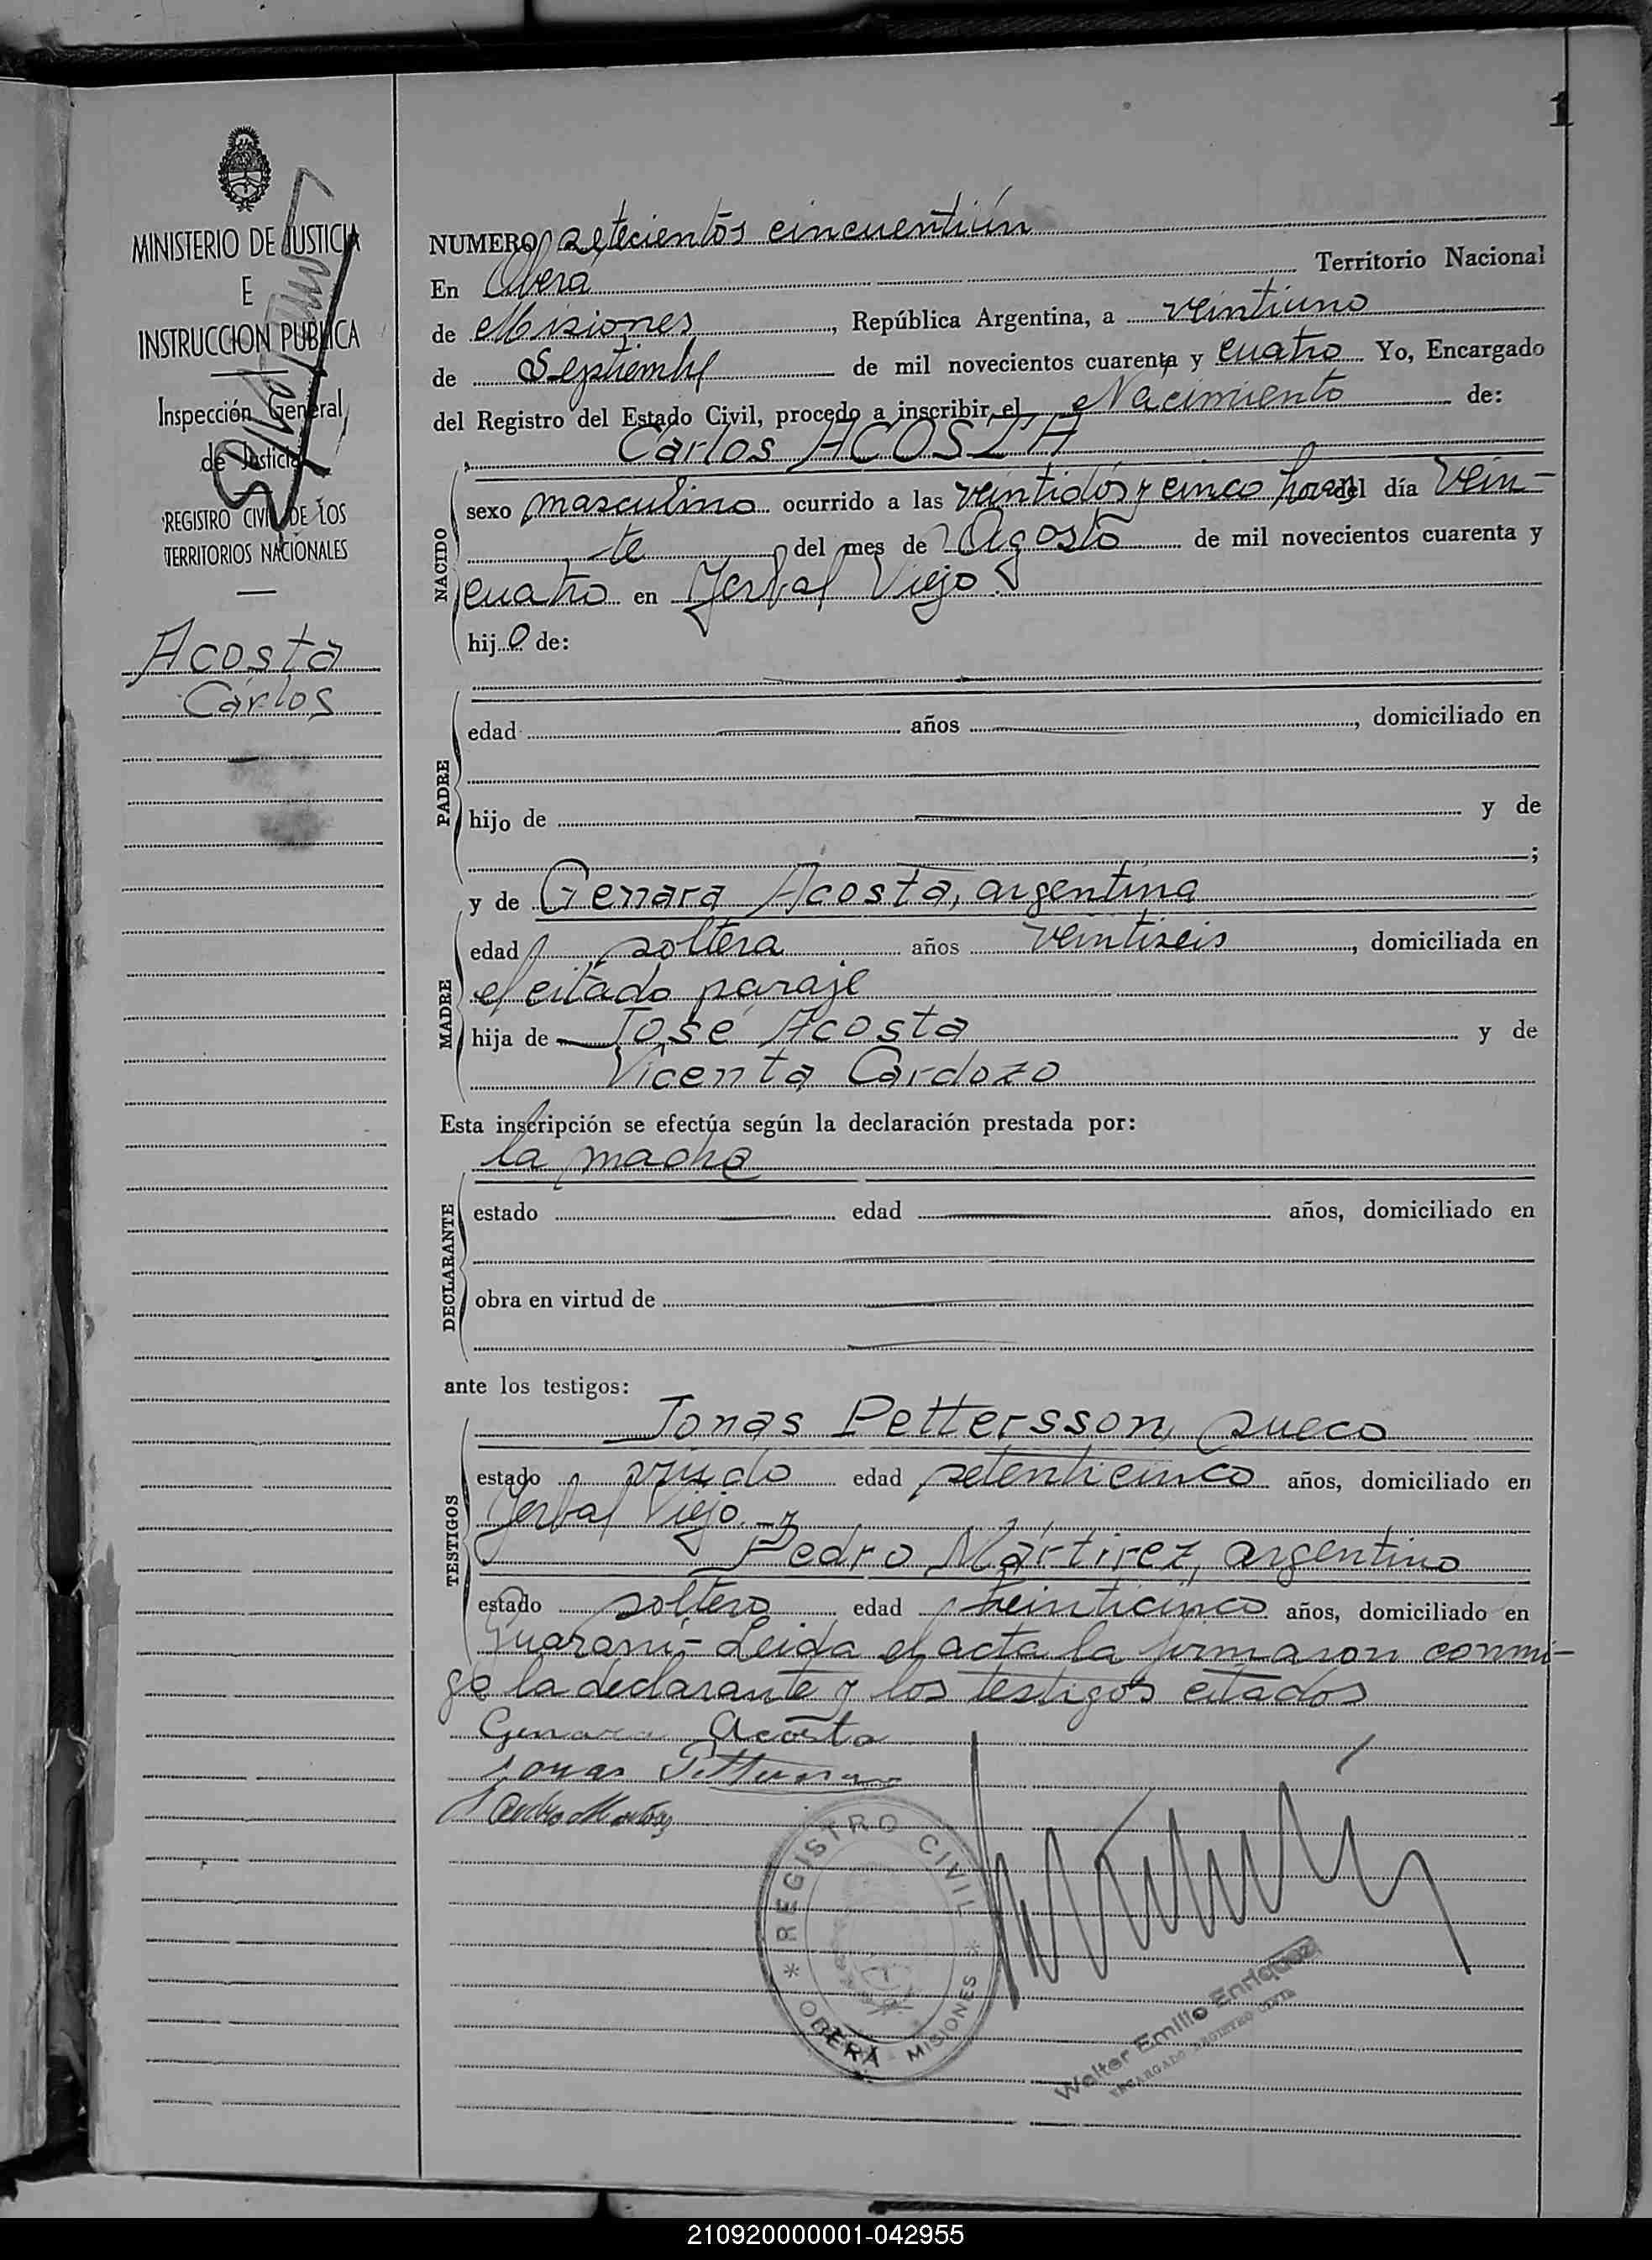 1
MINISTERIO DE JUSTICIA
E
INSTRUCCION PUBLICA
Inspección General
de Justicia
REGISTRO CIVIL DE LOS
TERRITORIOS NACIONALES
Acosta
Carlos
NUMERO setecientos cincuentiún
En Oberá Territorio Nacional
de Misiones, República Argentina, a veintiuno
de Septiembre de mil novecientos cuarenta y cuatro Yo, Encargado
del Registro del Estado Civil, procedo a inscribir el Nacimiento de:
Carlos ACOSTA
NACIDO
sexo masculino ocurrido a las veintidós y cinco horas del día vein-
te del mes de Agosto de mil novecientos cuarenta y
cuatro en Yerbal Viejo.
hijo de:
PADRE
edad años , domiciliado en
hijo de y de
;
y de Genara Acosta, argentina
MADRE
edad soltera años veintiseis, domiciliada en
el citado paraje
hija de José Acosta y de
Vicenta Cardozo
Esta inscripción se efectúa según la declaración prestada por:
la madre
DECLARANTE
estado edad años, domiciliado en
obra en virtud de
ante los testigos:
Jonas Pettersson, sueco
TESTIGOS
estado viudo edad setenticinco años, domiciliado en
Yerbal Viejo.- y
Pedro Mártirez, argentino
estado soltero edad treinticinco años, domiciliado en
Guaraní- Leida el acta la firmaron conmi-
go la declarante y los testigos citados
Genara Acosta
Jonas Pettersson
REGISTRO CIVIL
OBERÁ - MISIONES
Walter Emilio Enriquez
ENCARGADO REGISTRO CIVIL
210920000001-042955